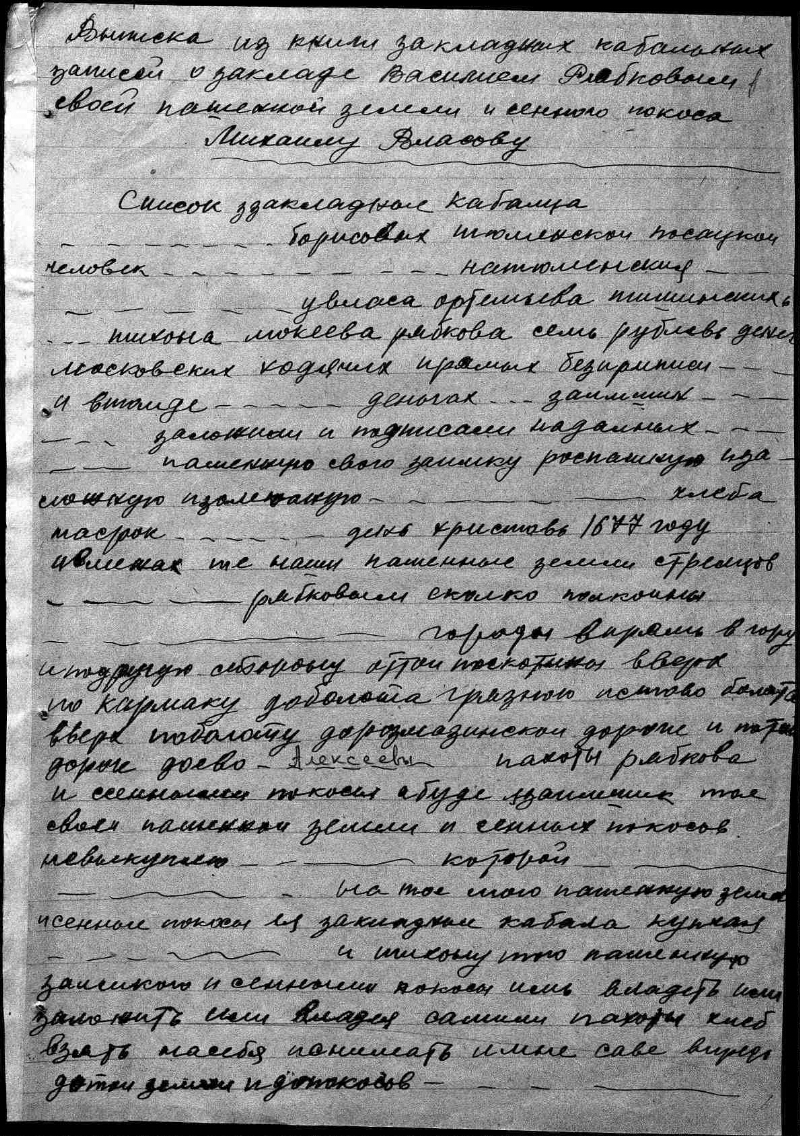 Выписка из книги закладных кабальных
записей о закладе Василием Рябковым
своей пашенной земли и сенного покоса
Михаилу Власову
Список ззакладные кабалца
_ _ _ _ борисовых тюменской посацкой
человек _ _ _ _ натюменския _ _
_ _ _ _ увласа ортемьева тишинских
_ _ _ тихона мокеева рябкова семь рублевь денег
московских ходячих прямых безприписи _ _ _
и втоиде _ _ _ деногах _ _ заимших _ _ _
_ _ _ заложили и подписали надалных _ _ _
_ _ _ пашенную свою заимку роспашную иза-
ложную _ _ _ _ хлеба
насрок _ _ _ _ день христовь 1677 году
ивмежах те наши пашенные земли стрелцов
_ _ _ _ рябковым сколко
_ _ _ _ городы впрямь в гору
иподругую сторону оттои поскотины вверх
по кармаку доболота грязною истово болота
вверх поболоту дорозмазинской дороге и потои
дороге доево _ Алексеевы пахоты рябкова
и сенными покосы абуде ззаимщик тое
своеи пашенной земли и сенных покосов
невыкуплю _ _ _ которой _ _ _
_ _ _ _ на тое мою пашенную землю
исенные покосы ся закладная кабала купчая
_ _ _ _ и тихону тою пашенную
заимкою и сенными покосы имь владеть или
заложить или владея самим пахоты хлеб
взять насебя иснимать имне саве впредь
дотои земли идопокосов _ _ _ _